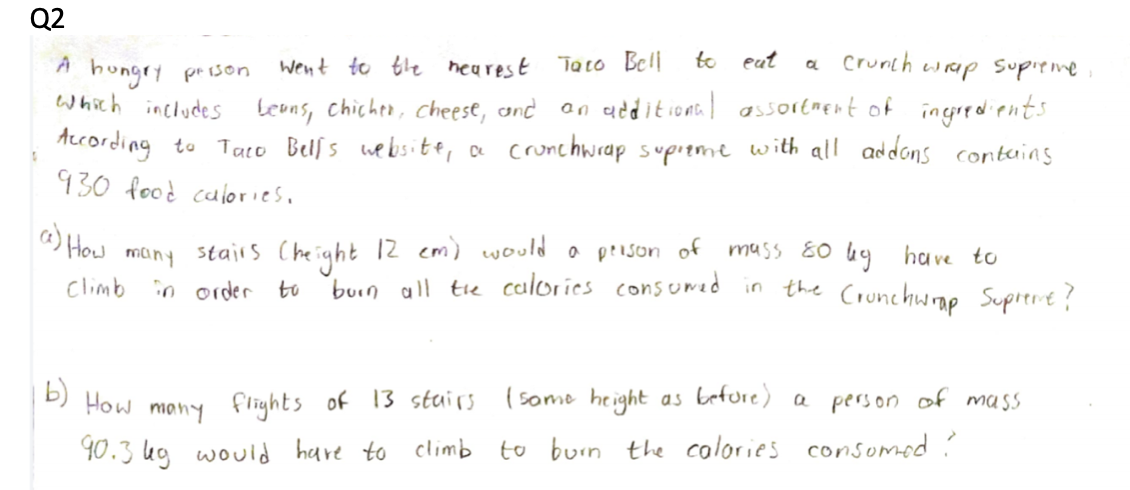 Q2
A hungry person went to the nearest Taco Bell to eat a crunch wrap supreme,
which includes beans, chicken, cheese, and an additional assortment of ingredients
According to Taco Bell's website, a crunchwrap supreme with all addons contains
930 food calories.
a) How many stairs (height 12 cm) would a person of mass 80 kg have to
climb in order to burn all the calories consumed in the Crunchwrap Supreme?
b) How many flights of 13 stairs (same height as before) a person of mass
90.3 kg would have to climb to burn the calories consumed?